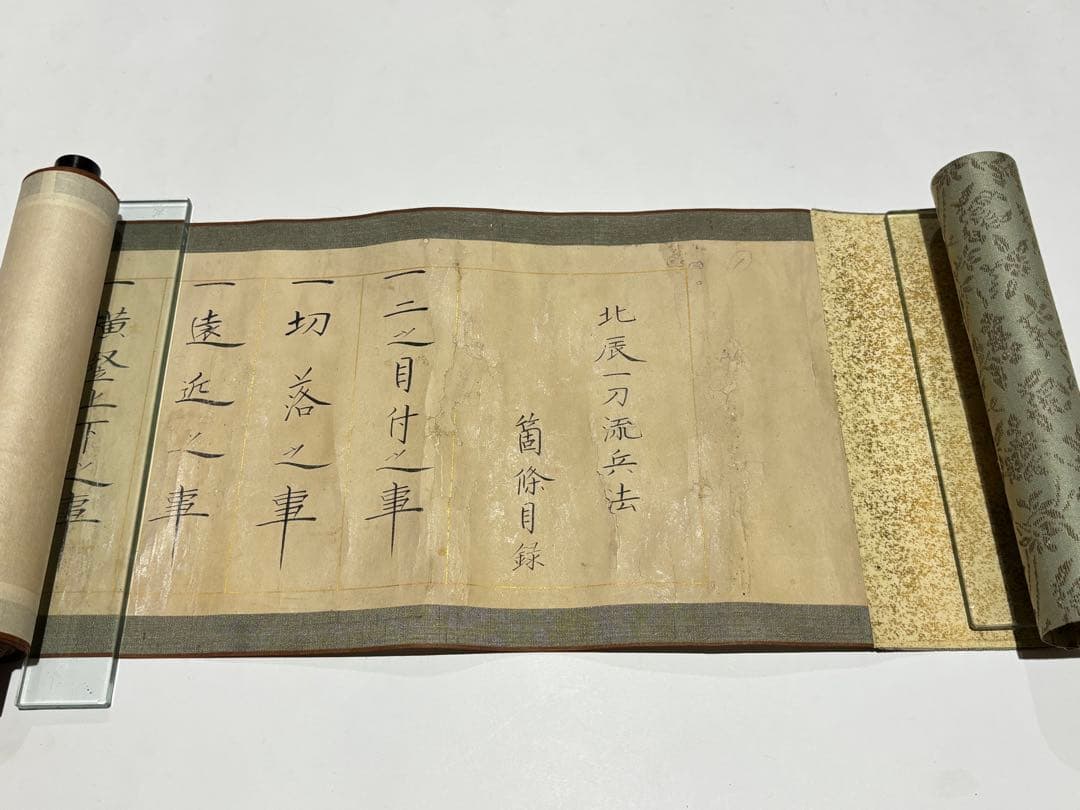 北辰一刀流兵法
箇條目録
一二之目付之事
一切落之事
一遠近之事
一横竪上下之事